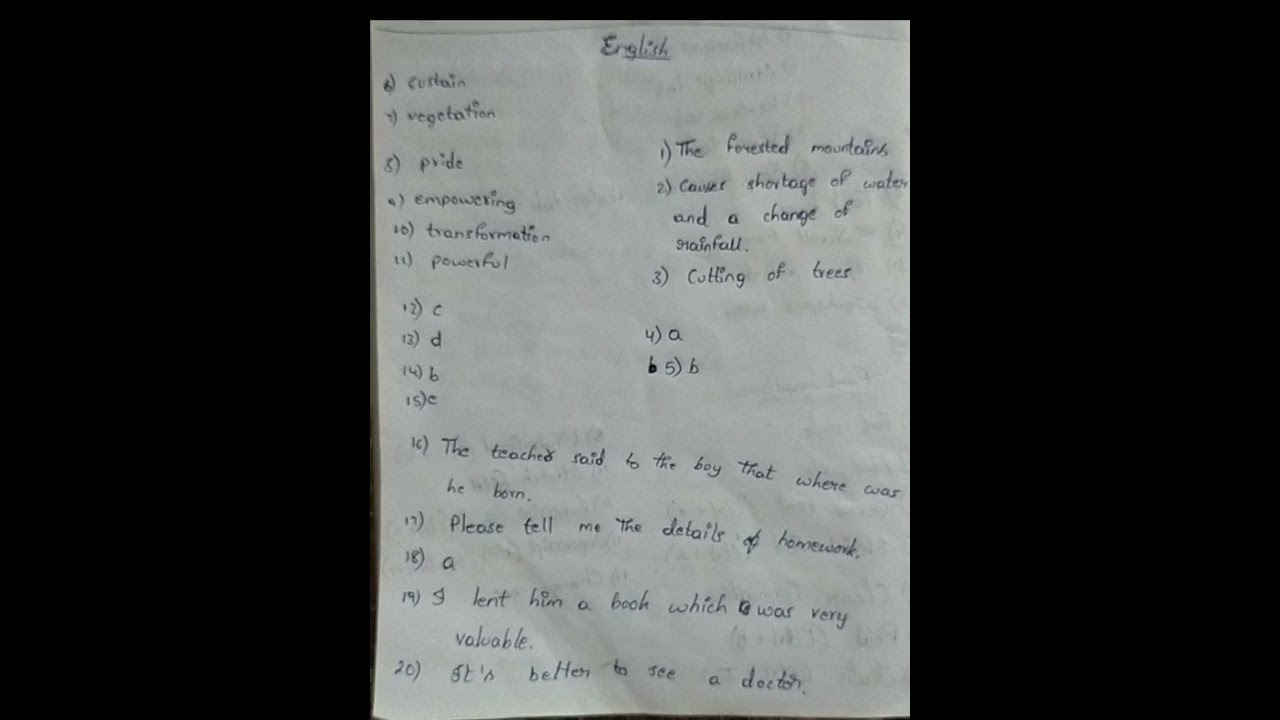 English
6) sustain
7) vegetation
8) pride
9) empowering
10) transformation
11) powerful
12) c
13) d
14) b
15) c
1) The forested mountains
2) Causes shortage of water
and a change of
rainfall.
3) Cutting of trees.
4) a
5) b
16) The teacher said to the boy that where was
he born.
17) Please tell me the details of homework.
18) a
19) I lent him a book which was very
valuable.
20) It's better to see a doctor.